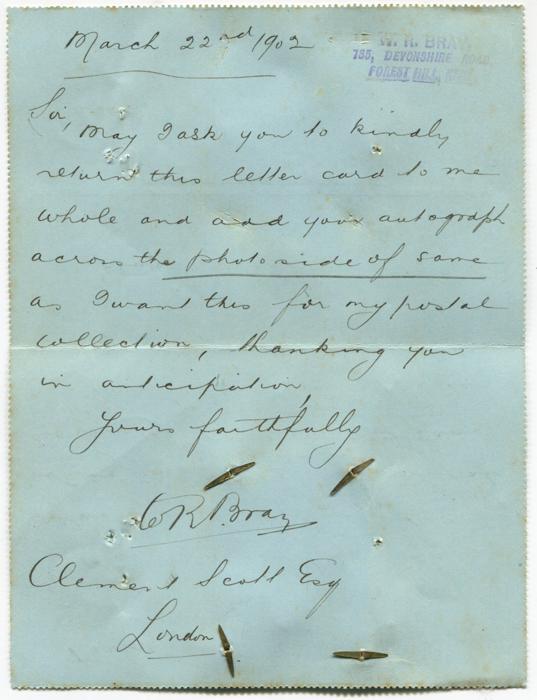 March 22nd 1902
W. R. BRAY
135, DEVONSHIRE ROAD,
FOREST HILL,
Sir,
May I ask you to kindly
return this letter card to me
whole and add your autograph
across the photo side of same
as I want this for my postal
collection, thanking you
in anticipation,
Yours faithfully
W R Bray
Clement Scott Esq
London